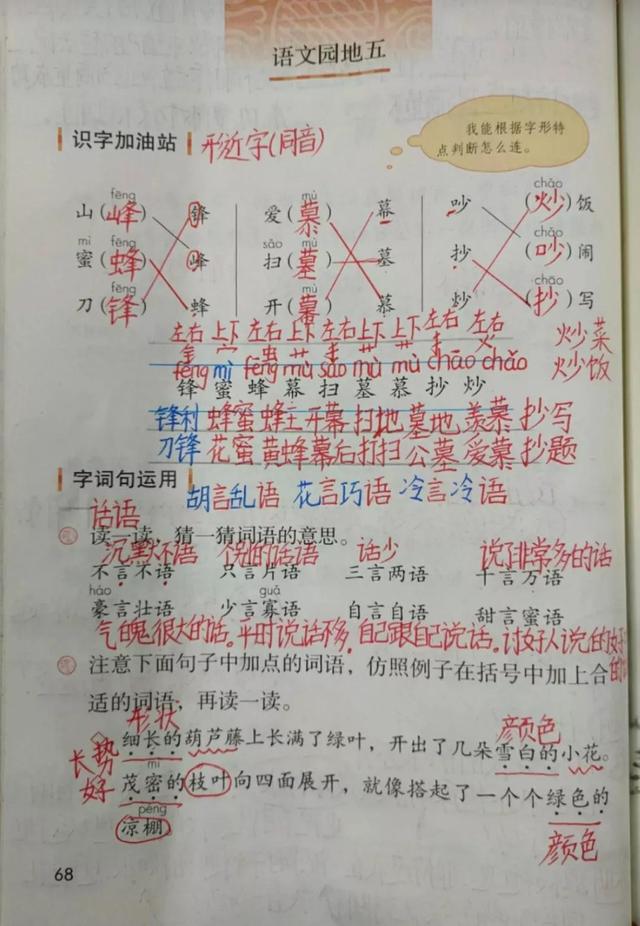 语文园地五
识字加油站 形近字(同音)
我能根据字形特
点判断怎么连。
fēng mù chǎo
山(峰) 锋 爱(慕) 幕 吵 (炒)饭
mì fēng sǎo mù chǎo
蜜(蜂) 峰 扫(墓) 墓 抄 (吵)闹
fēng mù chāo
刀(锋) 蜂 开(幕) 慕 炒 (抄)写
左右 上下 左右 上下 左右 上下 上下 左右 左右 炒菜
fēng mì fēng mù sǎo mù mù chāo chǎo 炒饭
锋 蜜 蜂 幕 扫 墓 慕 抄 炒
锋利 蜂蜜 蜂王 开幕 扫地 墓地 羡慕 抄写
刀锋 花蜜 黄蜂 幕后 打扫 公墓 爱慕 抄题
字词句运用
胡言乱语 花言巧语 冷言冷语
话语
读一读，猜一猜词语的意思。
沉默不语 个别的话语 话少 说了非常多的话
不言不语 只言片语 三言两语 十言万语
háo guǎ
豪言壮语 少言寡语 自言自语 甜言蜜语
气魄很大的话。平时说话不多。自己跟自己说话。讨好人说的
注意下面句子中加点的词语，仿照例子在括号中加上合
适的词语，再读一读。
形状 颜色
细长的葫芦藤上长满了绿叶，开出了几朵雪白的小花。
长势好
mì
茂密的枝叶向四面展开，就像搭起了一个个绿色的
péng
凉棚
颜色
68